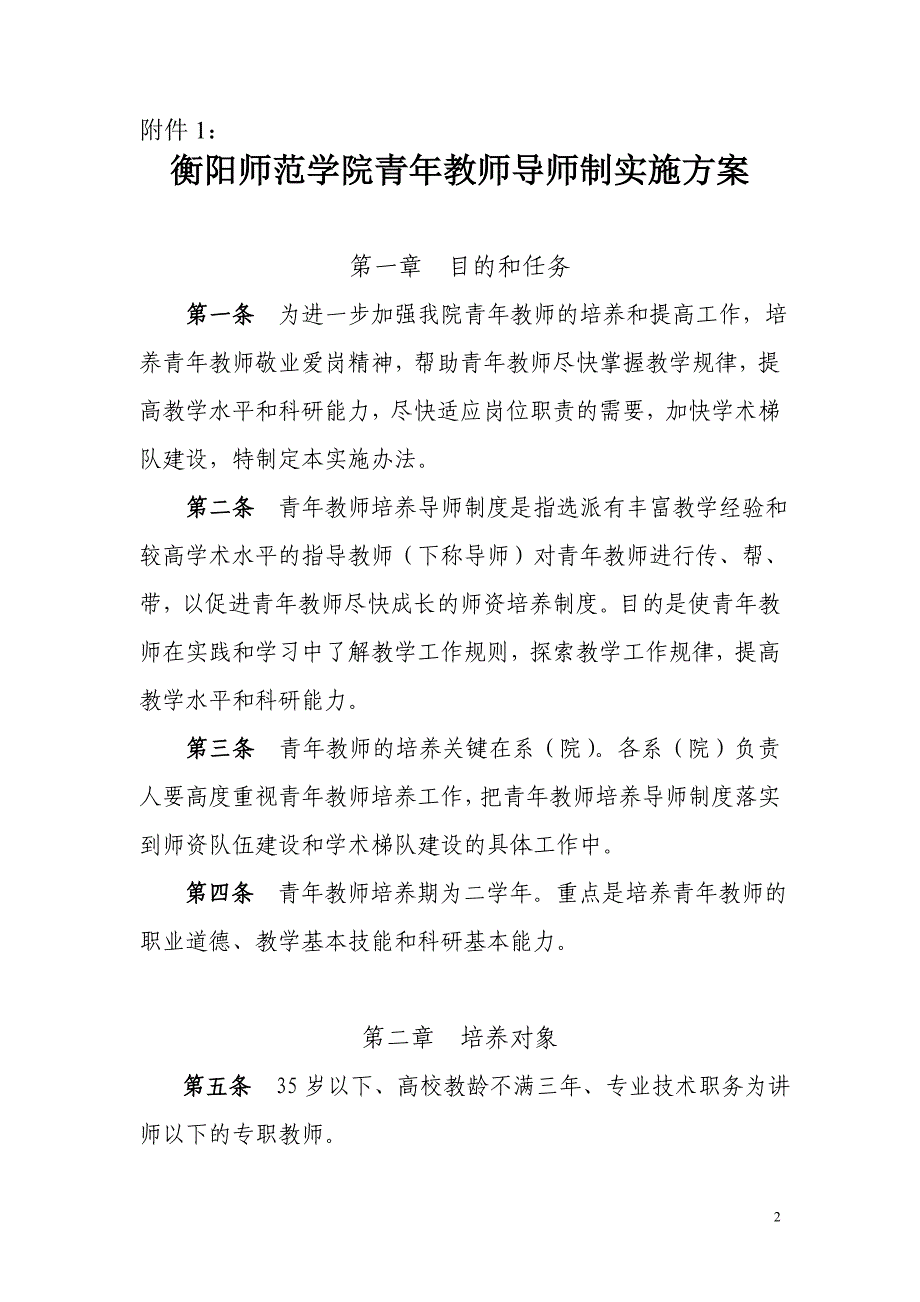 附件 1：
衡阳师范学院青年教师导师制实施方案
第一章　目的和任务
第一条　为进一步加强我院青年教师的培养和提高工作，培
养青年教师敬业爱岗精神，帮助青年教师尽快掌握教学规律，提
高教学水平和科研能力，尽快适应岗位职责的需要，加快学术梯
队建设，特制定本实施办法。
第二条　青年教师培养导师制度是指选派有丰富教学经验和
较高学术水平的指导教师（下称导师）对青年教师进行传、帮、
带，以促进青年教师尽快成长的师资培养制度。目的是使青年教
师在实践和学习中了解教学工作规则，探索教学工作规律，提高
教学水平和科研能力。
第三条　青年教师的培养关键在系（院）。各系（院）负责
人要高度重视青年教师培养工作，把青年教师培养导师制度落实
到师资队伍建设和学术梯队建设的具体工作中。
第四条　青年教师培养期为二学年。重点是培养青年教师的
职业道德、教学基本技能和科研基本能力。
第二章　培养对象
第五条　35 岁以下、高校教龄不满三年、专业技术职务为讲
师以下的专职教师。
2